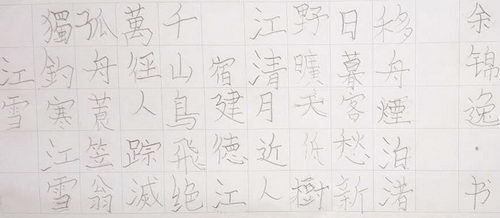 余锦逸·书
移舟煙泊渚
日暮客愁新
野曠天低樹
江清月近人
宿建德江
千山鳥飛绝
萬徑人踪滅
孤舟蓑笠翁
獨釣寒江雪
江雪